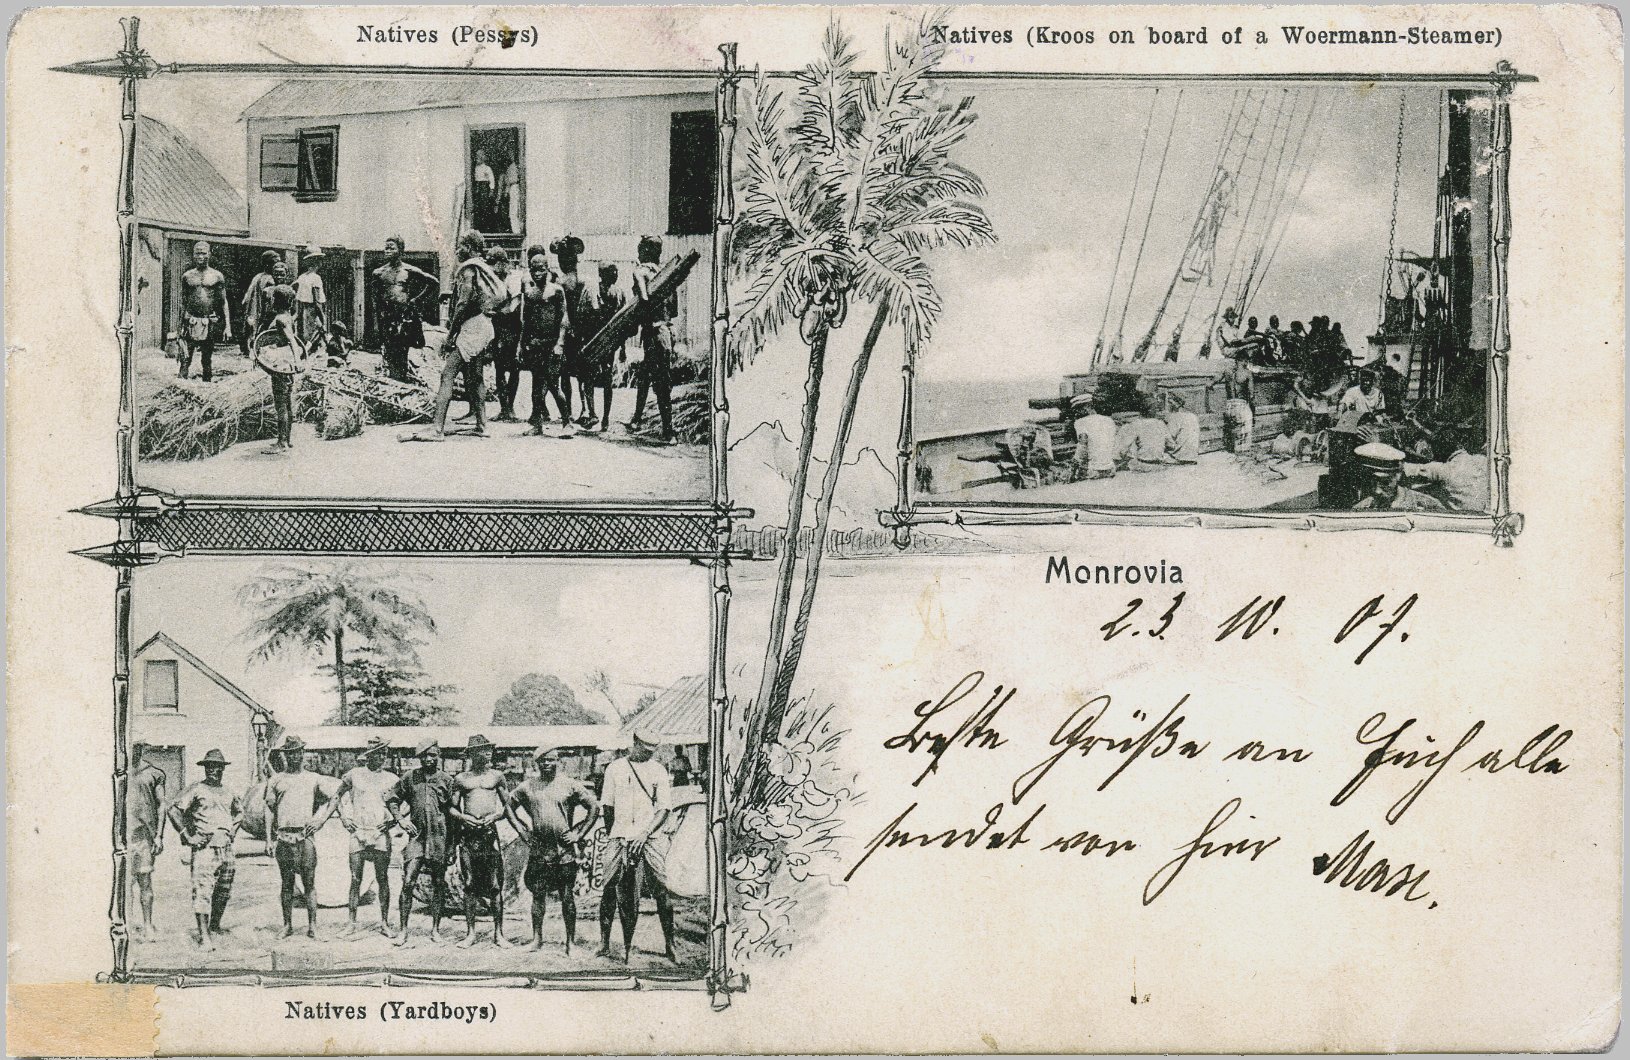 Natives (Pessys)
Natives (Kroos on board of a Woermann-Steamer)
Monrovia
23. 10. 07.
Beste Grüße an Euch alle
sendet von hier Max.
Natives (Yardboys)